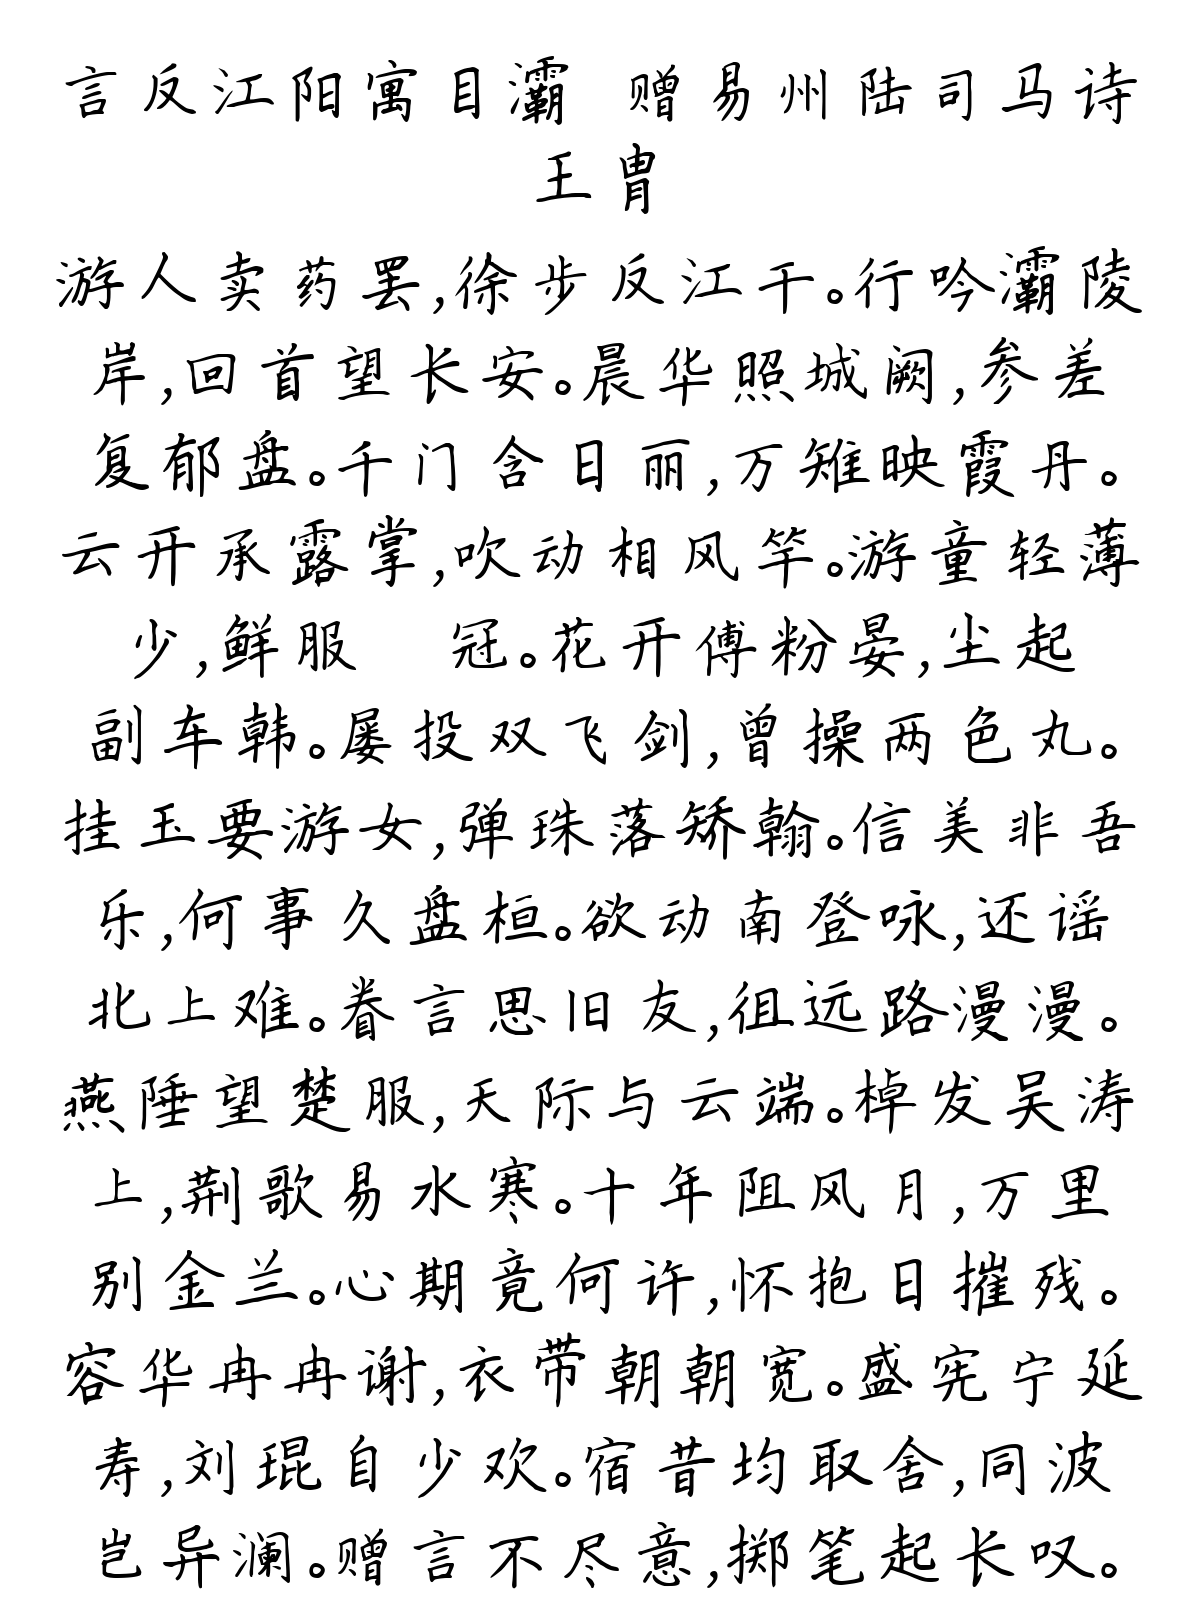 言反江阳寓目灞 赠易州陆司马诗
王胄
游人卖药罢,徐步反江干。行吟灞陵
岸,回首望长安。晨华照城阙,参差
复郁盘。千门含日丽,万雉映霞丹。
云开承露掌,吹动相风竿。游童轻薄
少,鲜服 冠。花开傅粉晏,尘起
副车韩。屡投双飞剑,曾操两色丸。
挂玉要游女,弹珠落矫翰。信美非吾
乐,何事久盘桓。欲动南登咏,还谣
北上难。眷言思旧友,徂远路漫漫。
燕陲望楚服,天际与云端。棹发吴涛
上,荆歌易水寒。十年阻风月,万里
别金兰。心期竟何许,怀抱日摧残。
容华冉冉谢,衣带朝朝宽。盛宪宁延
寿,刘琨自少欢。宿昔均取舍,同波
岂异澜。赠言不尽意,掷笔起长叹。